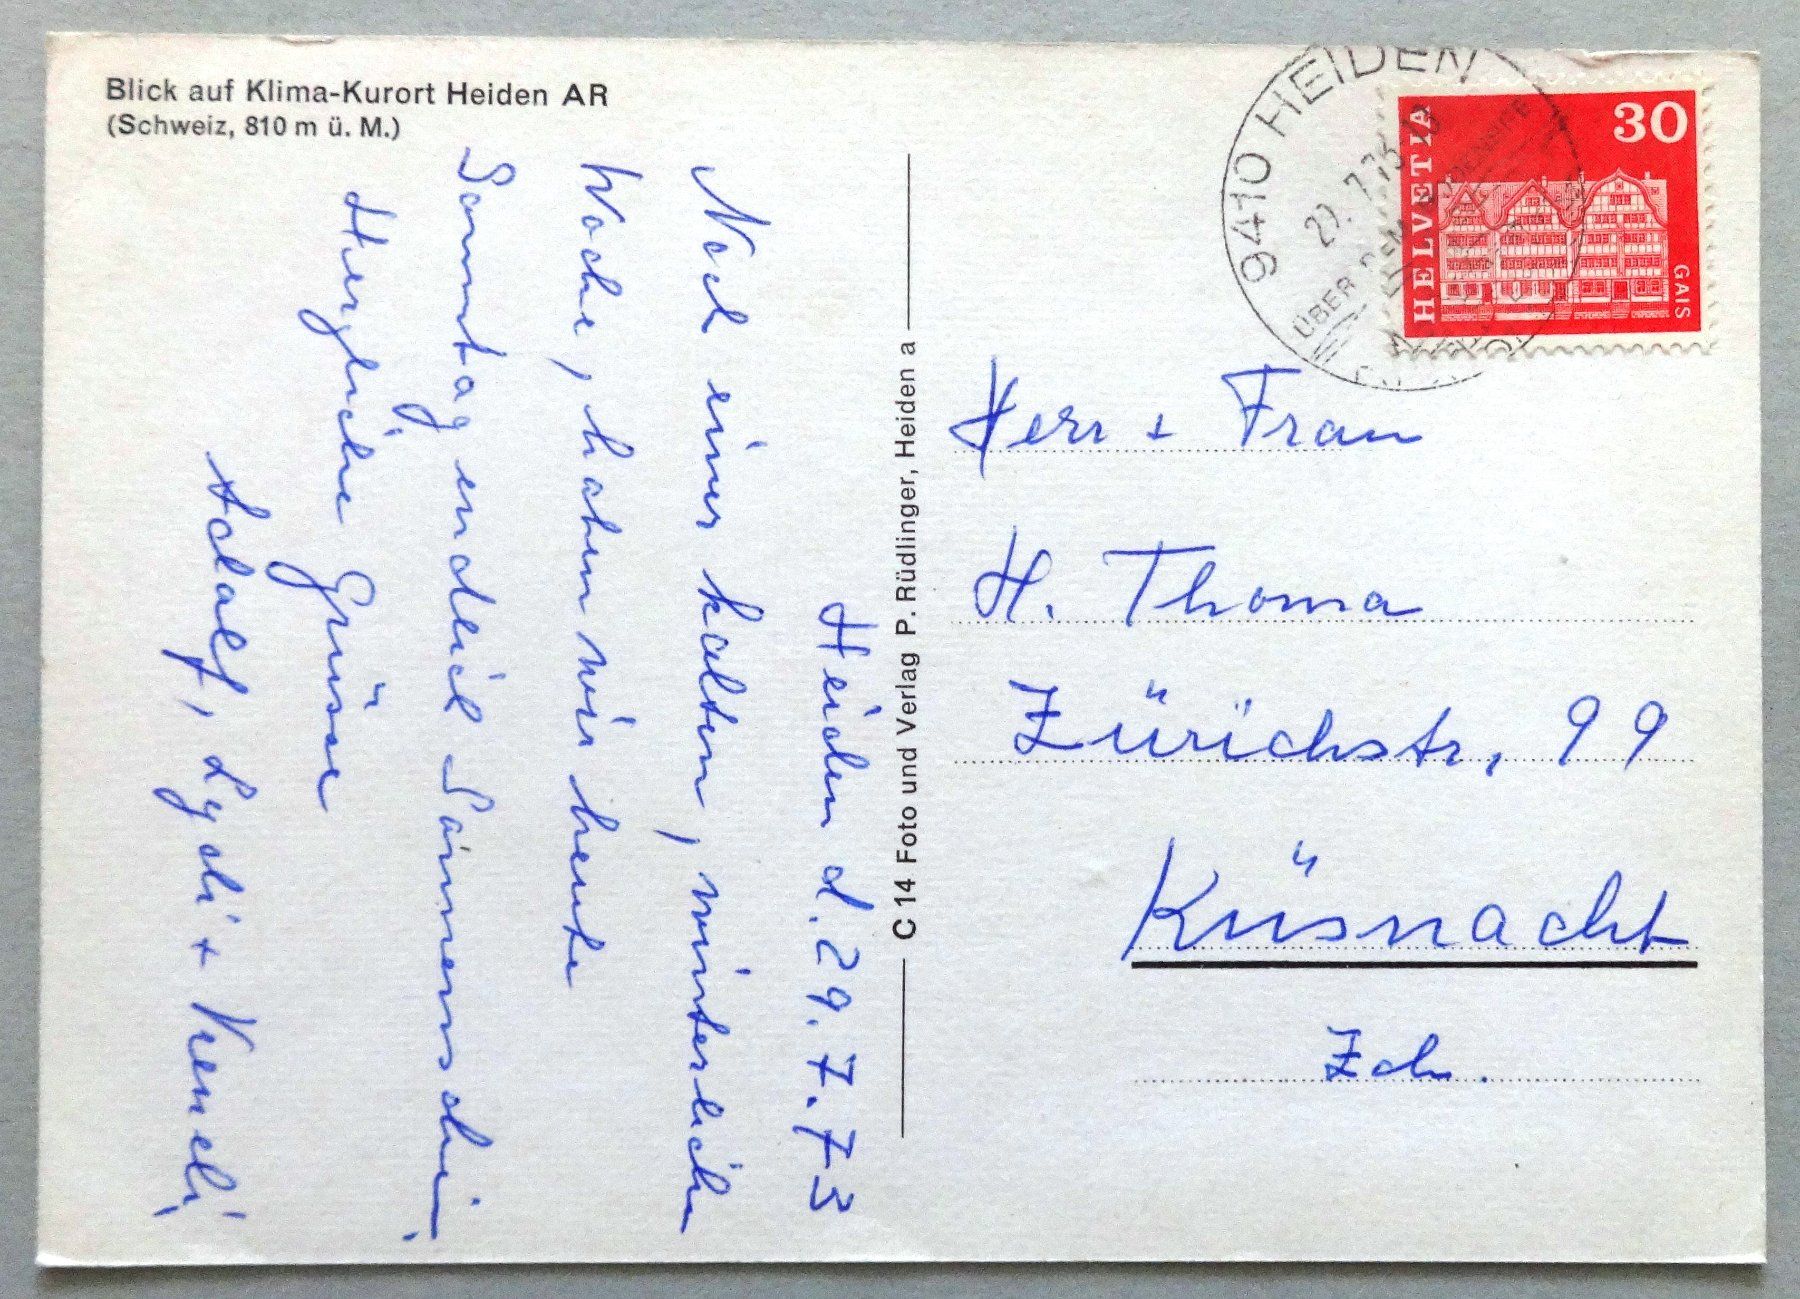 Blick auf Klima-Kurort Heiden AR
(Schweiz, 810 m ü. M.)
Heiden d. 29. 7. 73
Nach einer kalten, winterlichen
Woche, haben wir heute
Sonntag endlich Sonnenschein.
Herzliche Grüsse
Adalf, Lydi +
C 14 Foto und Verlag P. Rüdlinger, Heiden a
9410 HEIDEN
ÜBER DEM BODENSEE
HELVETIA
30
GAIS
Herr + Frau
H. Thoma
Zürichstr, 99
Küsnacht
Zch.